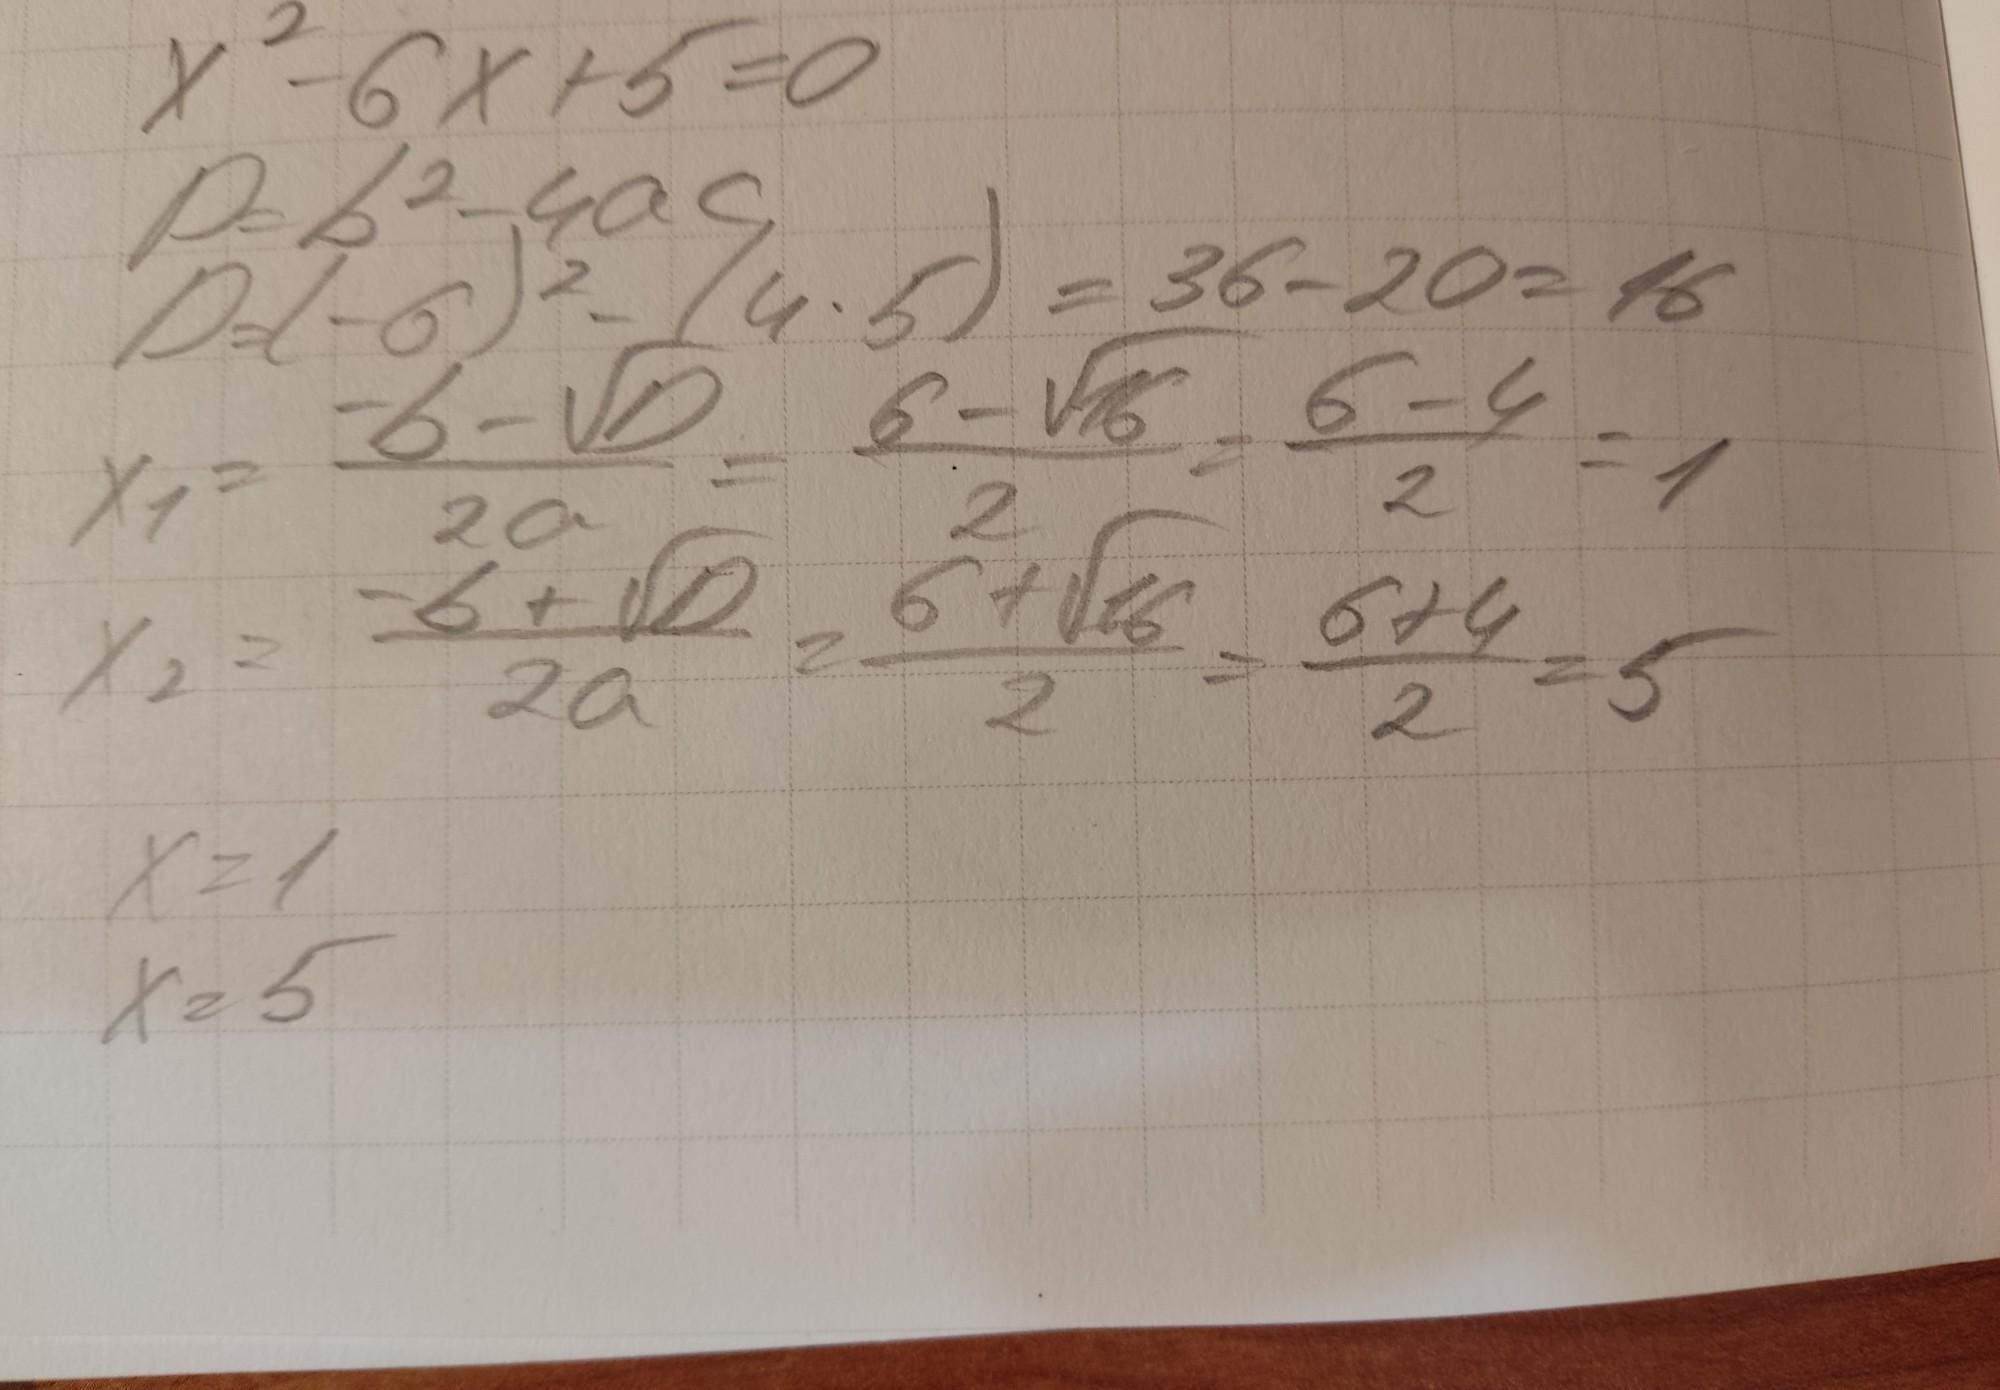 x² - 6x + 5 = 0
D = b² - 4ac
D = (-6)² - (4 · 5) = 36 - 20 = 16
x₁ = (-b - √D)/(2a) = (6 - √16)/2 = (6 - 4)/2 = 1
x₂ = (-b + √D)/(2a) = (6 + √16)/2 = (6 + 4)/2 = 5
x = 1
x = 5